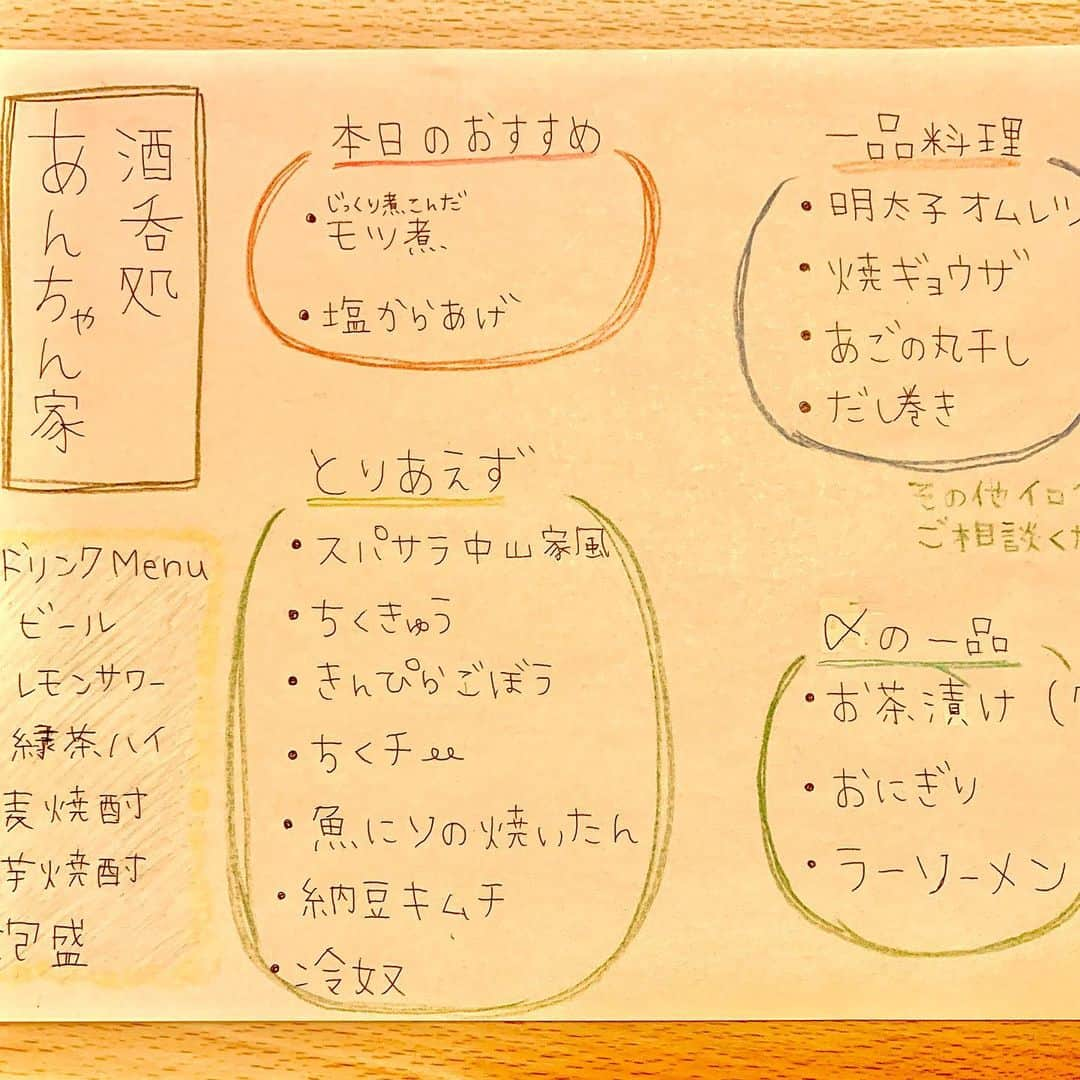 酒呑処
あんちゃん家
本日のおすすめ
じっくり煮こんだ
・モツ煮
・塩からあげ
一品料理
・明太子オムレツ
・焼ギョウザ
・あごの丸干し
・だし巻き
その他イロ
ご相談くだ
とりあえず
・スパサラ中山家風
・ちくきゅう
・きんぴらごぼう
・ちくチー
・魚にソの焼いたん
・納豆キムチ
・冷奴
ドリンクMenu
ビール
レモンサワー
緑茶ハイ
麦焼酎
芋焼酎
泡盛
〆の一品
・お茶漬け(
・おにぎり
・ラーソーメン